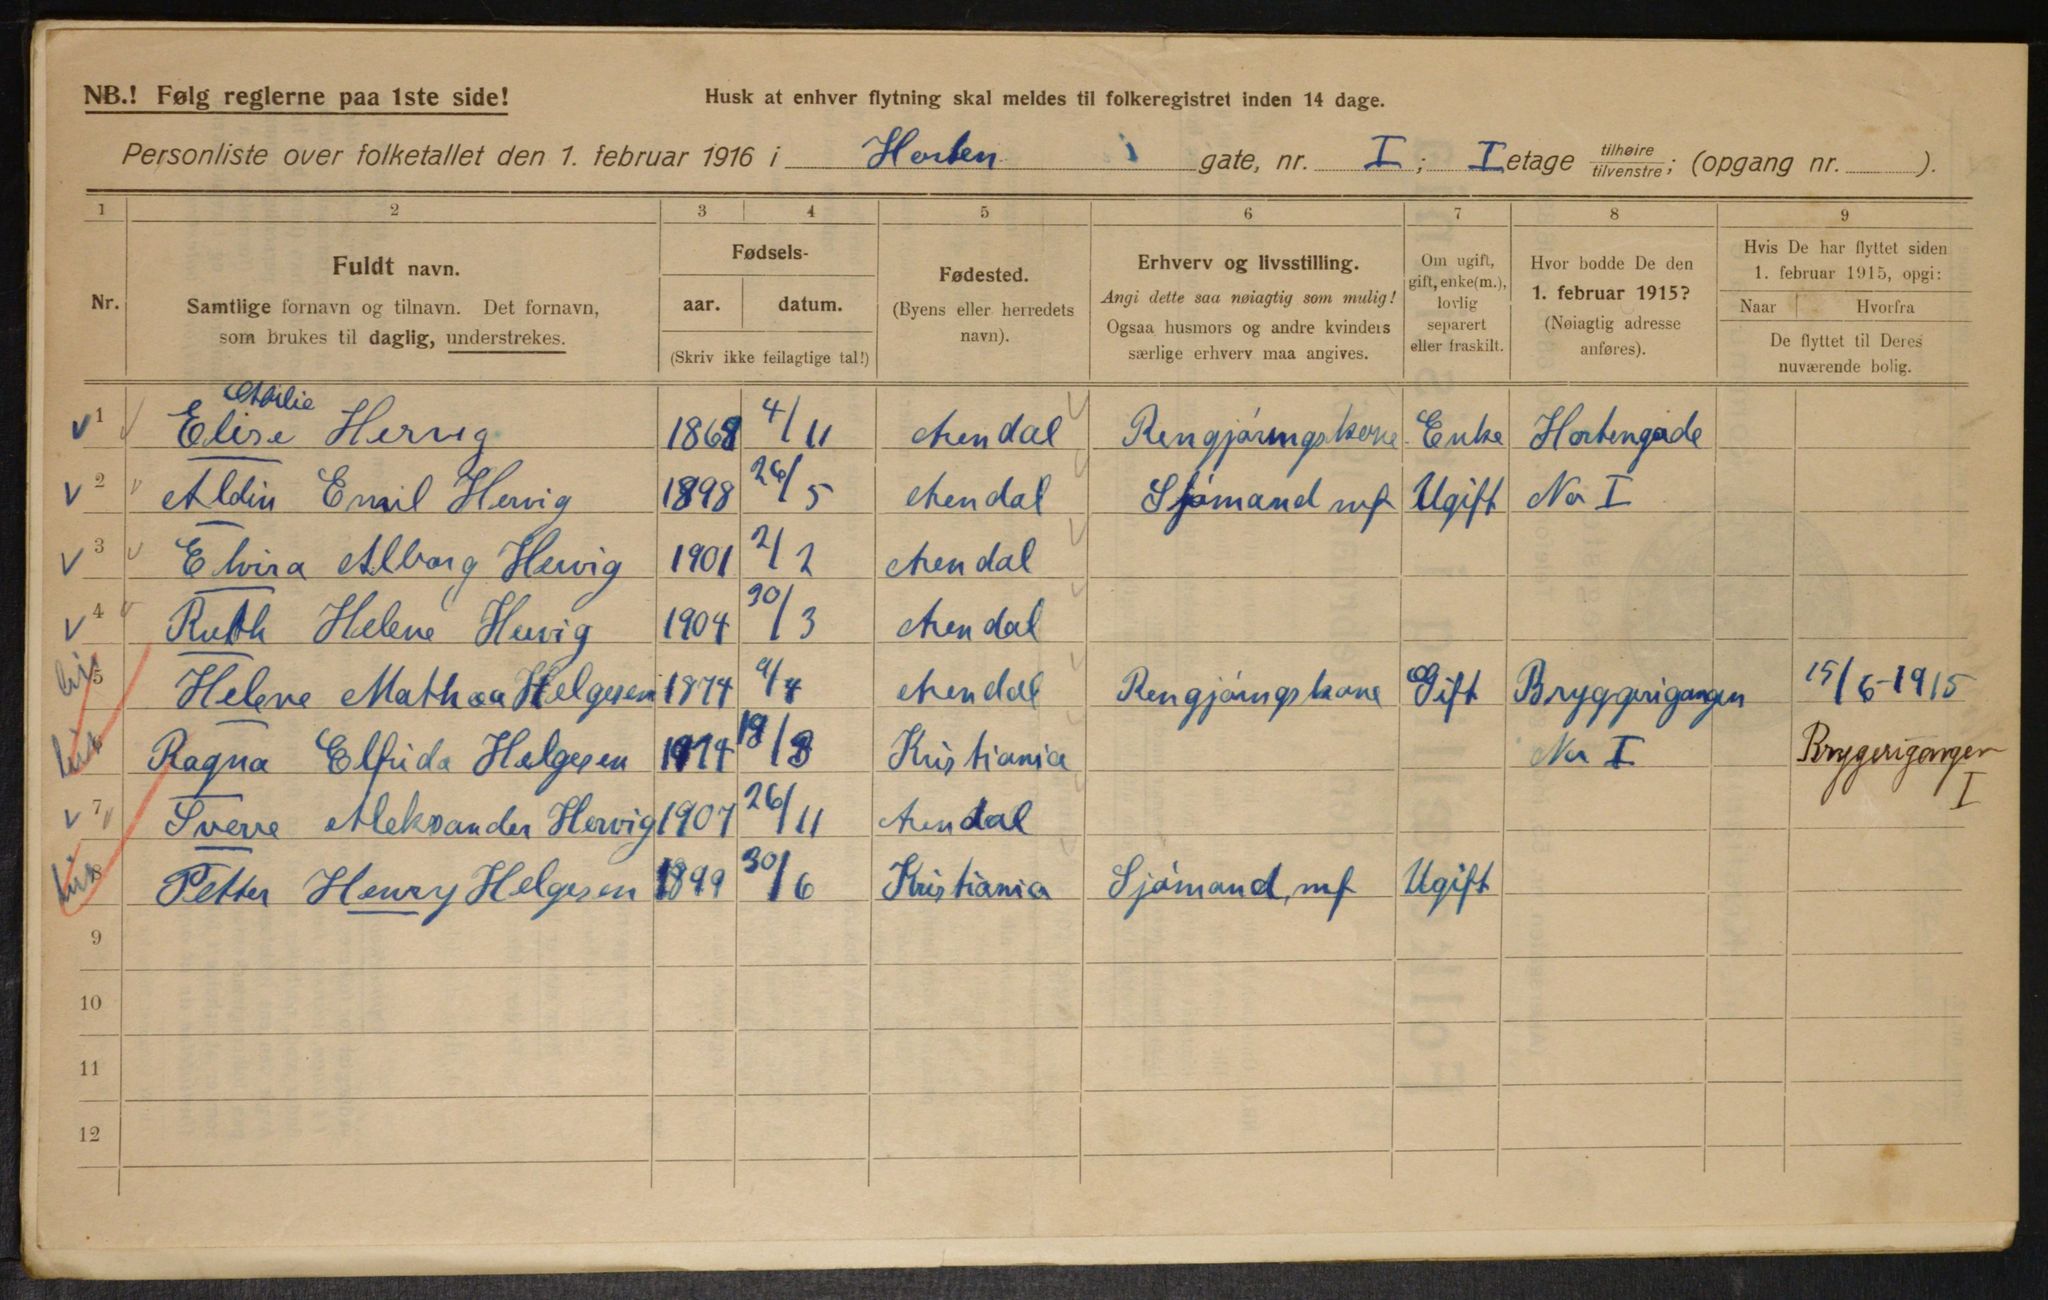 NB.! Følg reglerne paa 1ste side!
Husk at enhver flytning skal meldes til folkeregistret inden 14 dage.
Personliste over folketallet den 1. februar 1916 i Horten gate, nr. I; I etage tilhøire/tilvenstre; (opgang nr. ).
1 2 3 4 5 6 7 8 9
Nr.
Fuldt navn.
Samtlige fornavn og tilnavn. Det fornavn,
som brukes til daglig, understrekes.
Fødsels-
aar. datum.
(Skriv ikke feilagtige tal!)
Fødested.
(Byens eller herredets
navn).
Erhverv og livsstilling.
Angi dette saa nøiagtig som mulig!
Ogsaa husmors og andre kvinders
særlige erhverv maa angives.
Om ugift,
gift, enke(m.),
lovlig
separert
eller fraskilt.
Hvor bodde De den
1. februar 1915?
(Nøiagtig adresse
anføres).
Hvis De har flyttet siden
1. februar 1915, opgi:
Naar Hvorfra
De flyttet til Deres
nuværende bolig.
1 Elise Hervig 1868 4/11 Arendal Rengjøringskone Enke Hortengade
2 Aldin Emil Hervig 1898 26/5 Arendal Sjømand mf Ugift No I
3 Elvira Alborg Hervig 1901 2/2 Arendal
4 Ruth Helene Hervig 1904 30/3 Arendal
5 Helene Mathea Helgesen 1874 9/4 Arendal Rengjøringskone Gift Bryggerigangen 15/6-1915
Ragna Elfrida Helgesen 18/8 Kristiania No I Bryggerigangen I
7 Sverre Aleksander Hervig 1907 26/11 Arendal
8 Petter Henry Helgesen 1899 30/6 Kristiania Sjømand, mf Ugift
9
10
11
12